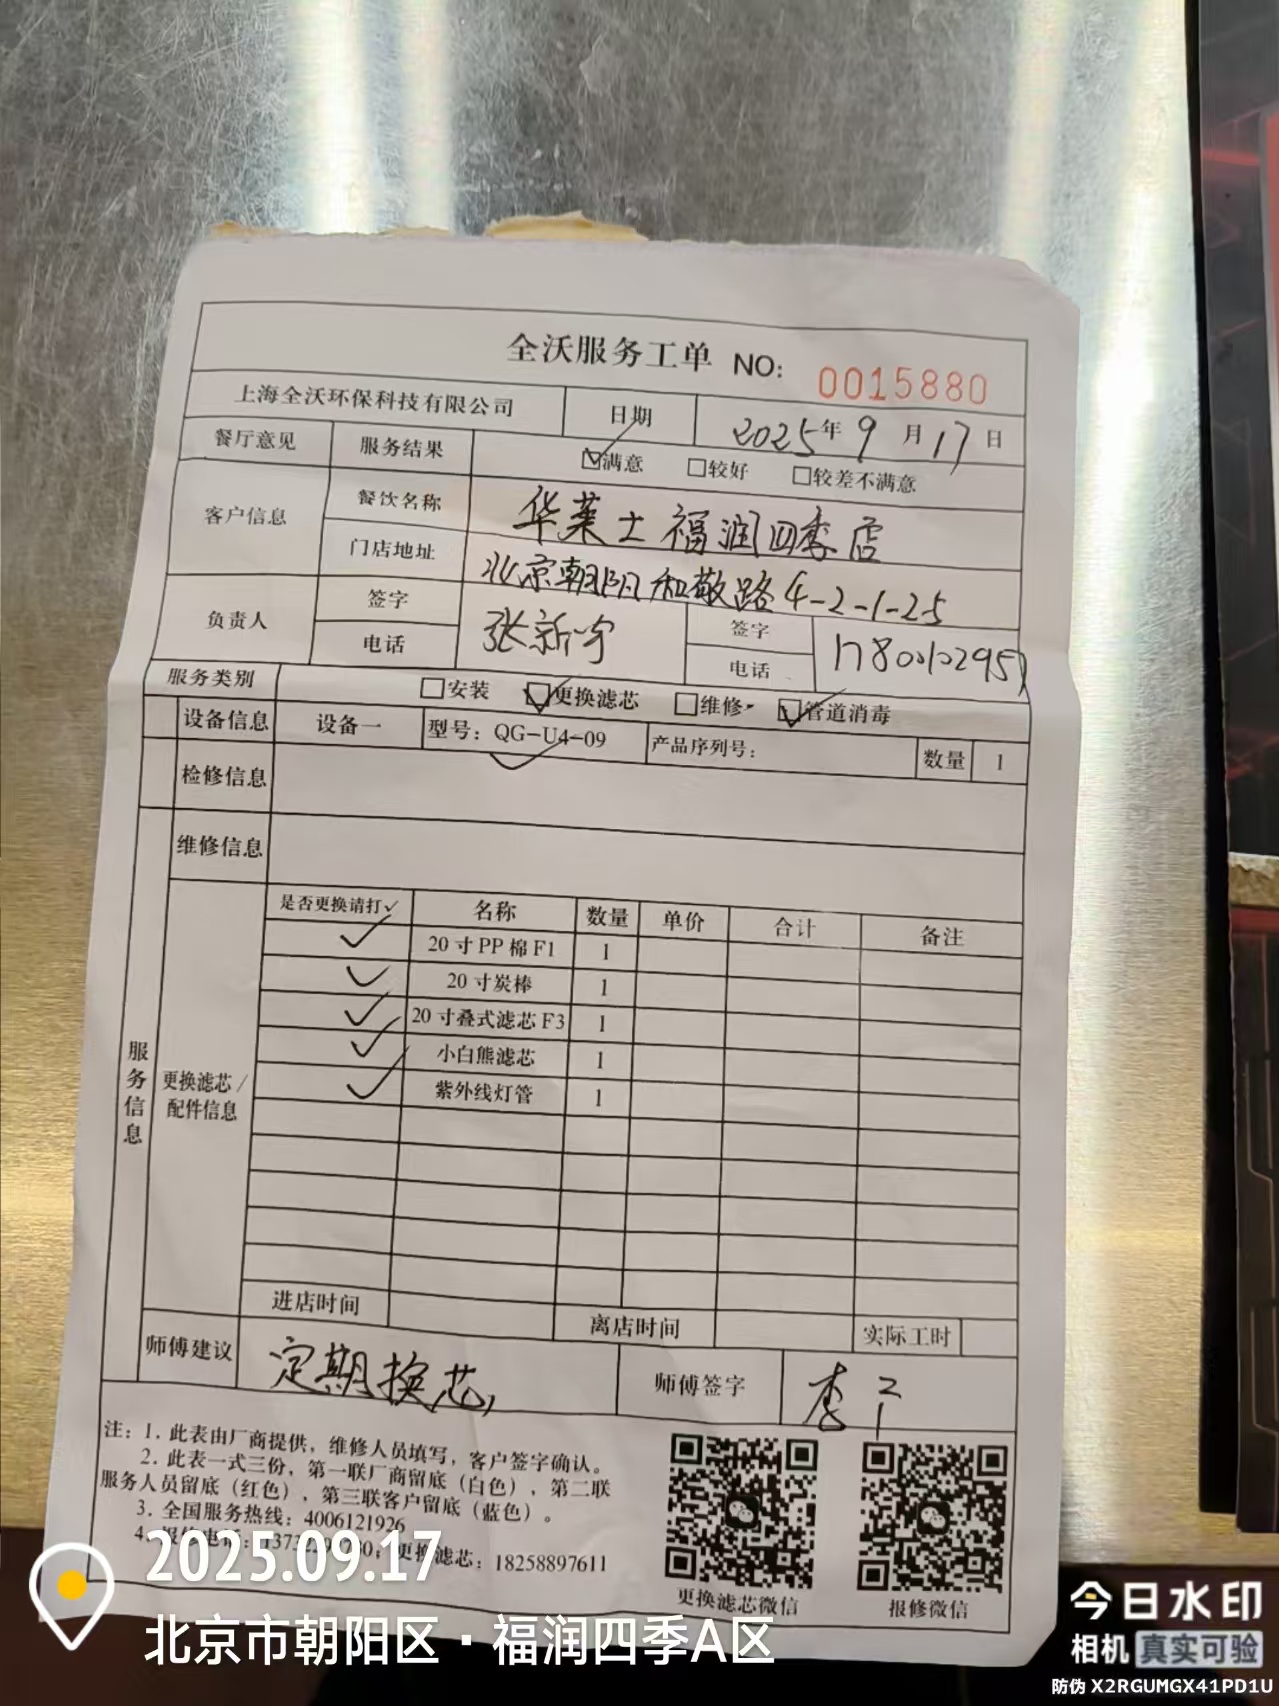 全沃服务工单 NO: 0015880
上海全沃环保科技有限公司 日期 2025年9月17日
餐厅意见 服务结果 ☑满意 □较好 □较差不满意
客户信息 餐饮名称 华莱士福润四季店
门店地址 北京朝阳和敬路4-2-1-25
负责人 签字 张新宇 签字
电话 电话 1780010295
服务类别 □安装 ☑更换滤芯 □维修 ☑管道消毒
设备信息 设备一 型号：QG-U4-09 产品序列号： 数量 1
检修信息
维修信息
服务信息
更换滤芯/配件信息
是否更换请打✓ 名称 数量 单价 合计 备注
✓ 20寸PP棉F1 1
✓ 20寸炭棒 1
✓ 20寸叠式滤芯F3 1
✓ 小白熊滤芯 1
✓ 紫外线灯管 1
进店时间 离店时间 实际工时
师傅建议 定期换芯 师傅签字 李
注：1. 此表由厂商提供，维修人员填写，客户签字确认。
2. 此表一式三份，第一联厂商留底（白色），第二联
服务人员留底（红色），第三联客户留底（蓝色）。
3. 全国服务热线：4006121926
4. 更换滤芯：18258897611
更换滤芯微信 报修微信
2025.09.17
北京市朝阳区·福润四季A区
今日水印
相机 真实可验
防伪 X2RGUMGX41PD1U